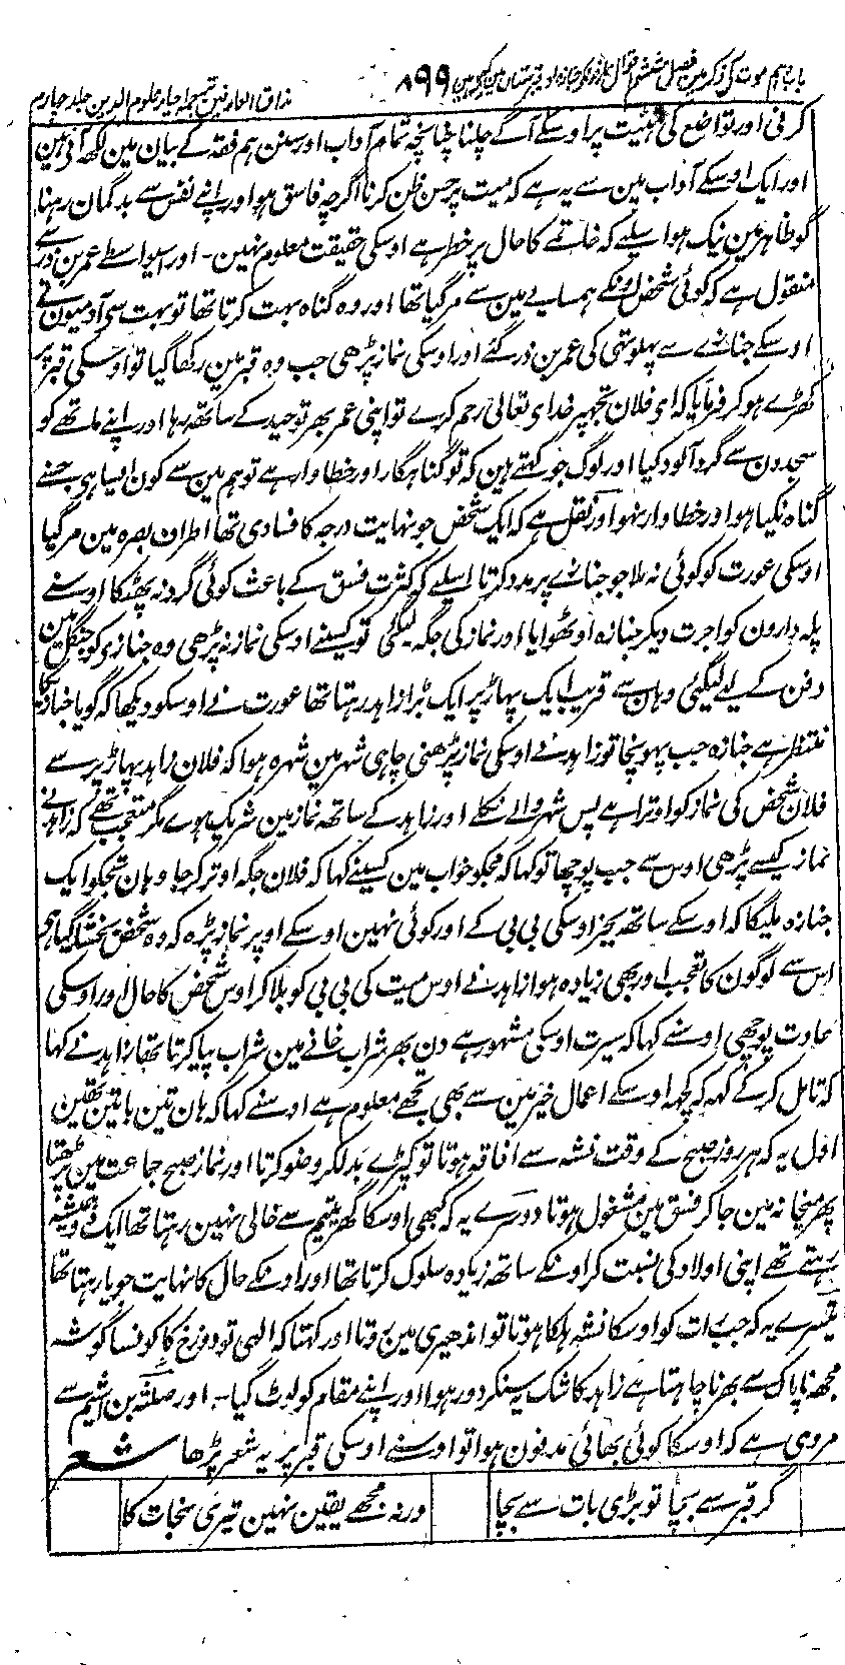 باب دہم موت کی ذکر مین فصل ششم اقوال عارفون کو جنازہ اور قبرستان مین کیسی ہین ۸۹۹ مذاق العارفین ترجمہ احیاء علوم الدین جلد چہارم
کرنی اور تواضع کی ہیئت پر اوسکے آگے چلنا چنانچہ تمام آداب اور سنن ہم فقہ کے بیان مین لکھ آئی ہین
اور ایک اوسکے آداب مین سے یہ ہے کہ میت پر حسن ظن کرنا اگرچہ فاسق ہو اور اپنے نفس سے بدگمان رہنا
گو ظاہر مین نیک ہو اسلیے کہ خاتمے کا حال پر خطر ہے اوسکی حقیقت معلوم نہین۔ اور اسیواسطے عمر بن ذر سے
منقول ہے کہ کوئی شخص اونکے ہمسایے مین سے مرگیا تھا اور وہ گناہ بہت کرتا تھا تو بہت سی آدمیون نے
اوسکے جنازے سے پہلوتہی کی عمر بن ذر گئے اور اوسکی نماز پڑھی جب وہ قبر مین رکھا گیا تو اوسکی قبر پر
کھڑے ہو کر فرمایا کہ ای فلان تجھپر خدای تعالی رحم کرے تو اپنی عمر بھر توحید کے ساتھ رہا اور اپنے ماتھے کو
سجدون سے گرد آلود کیا اور لوگ جو کہتے ہین کہ تو گناہگار اور خطاوار ہے تو ہم مین سے کون ایسا ہی جسنے
گناہ نکیا ہو اور خطاوار نہو اور نقل ہے کہ ایک شخص جو نہایت درجہ کا فسادی تھا اطراف بصرہ مین مرگیا
اوسکی عورت کو کوئی نہ ملا جو جنازے پر مدد کرتا اسلیے کہ کثرت فسق کے باعث کوئی گرد نہ پھٹکا اوسنے
پلہ دارون کو اجرت دیکر جنازہ اوٹھوایا اور نماز کی جگہ لیگئی تو کسینے اوسکی نماز نہ پڑھی وہ جنازی کو جنگل مین
دفن کے لیے لیگئی وہان سے قریب ایک پہاڑ پر ایک بڑا زاہد رہتا تھا عورت نے اوسکو دیکھا کہ گویا جنازیکا
منتظر ہے جنازہ جب پہونچا تو زاہد نے اوسکی نماز پڑھنی چاہی شہر مین شہرہ ہوا کہ فلان زاہد پہاڑ پر سے
فلان شخص کی نماز کو اوترا ہے پس شہر والے نکلے اور زاہد کے ساتھ نماز مین شریک ہوے مگر متعجب تھے کہ زاہدنے
نماز کیسے پڑھی اوس سے جب پوچھا تو کہا کہ مجکو خواب مین کسینے کہا کہ فلان جگہ اوتر کر جا وہان تجکو ایک
جنازہ ملیگا کہ اوسکے ساتھ بجز اوسکی بی بی کے اور کوئی نہین اوسکے اوپر نماز پڑہ کہ وہ شخص بخشا گیا ہی
اس سے لوگون کا تعجب اور بھی زیادہ ہوا زاہد نے اوس میت کی بی بی کو بلا کر اوس شخص کا حال اور اوسکی
عادت پوچھی اوسنے کہا کہ سیرت اوسکی مشہور ہے دن بھر شراب خانے مین شراب پیا کرتا تھا زاہد نے کہا
کہ تامل کرکے کہہ کہ کچھ اوسکے اعمال خیر مین سے بھی تجھے معلوم ہے اوسنے کہا کہ ہان تین باتین تھین
اول یہ کہ ہر روز صبح کے وقت نشہ سے افاقہ ہوتا تو کپڑے بدلکر وضو کرتا اور نماز صبح جماعت مین پڑھتا
پھر میخانہ مین جا کر فسق مین مشغول ہوتا دوسرے یہ کہ کبھی اوسکا گھر یتیم سے خالی نہین رہتا تھا ایک دو ہمیشہ
رہتے تھے اپنی اولاد کی نسبت کر اونکے ساتھ زیادہ سلوک کرتا تھا اور اونکے حال کا نہایت جویا رہتا تھا
تیسرے یہ کہ جب رات کو اوسکا نشہ ہلکا ہوتا تو اندھیری مین روتا اور کہتا کہ الہی تو دوزخ کا کونسا گوشہ
مجھ ناپاک سے بھرنا چاہتا ہے زاہد کا شک یہ سنکر دور ہوا اور اپنے مقام کو لوٹ گیا۔ اور صلہ بن اشیم سے
مروی ہے کہ اوسکا کوئی بھائی مدفون ہوا تو اوسنے اوسکی قبر پر یہ شعر پڑھا شعر
گر قبر سے بچا تو بڑی بات سے بچا ورنہ مجھے یقین نہین تیری نجات کا